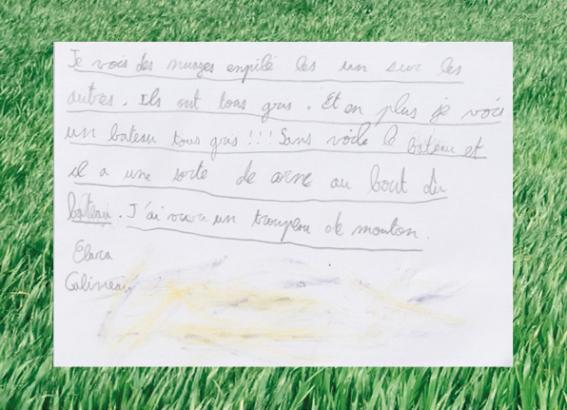 Je vois des nuages empilé les un sur les
autres. Ils ont tous gris. Et en plus je vois
un bateau tous gris !!! Sans voile le bateau et
il a une sorte de corne au bout du
bateau. J'ai un troupeau de mouton.
Elora